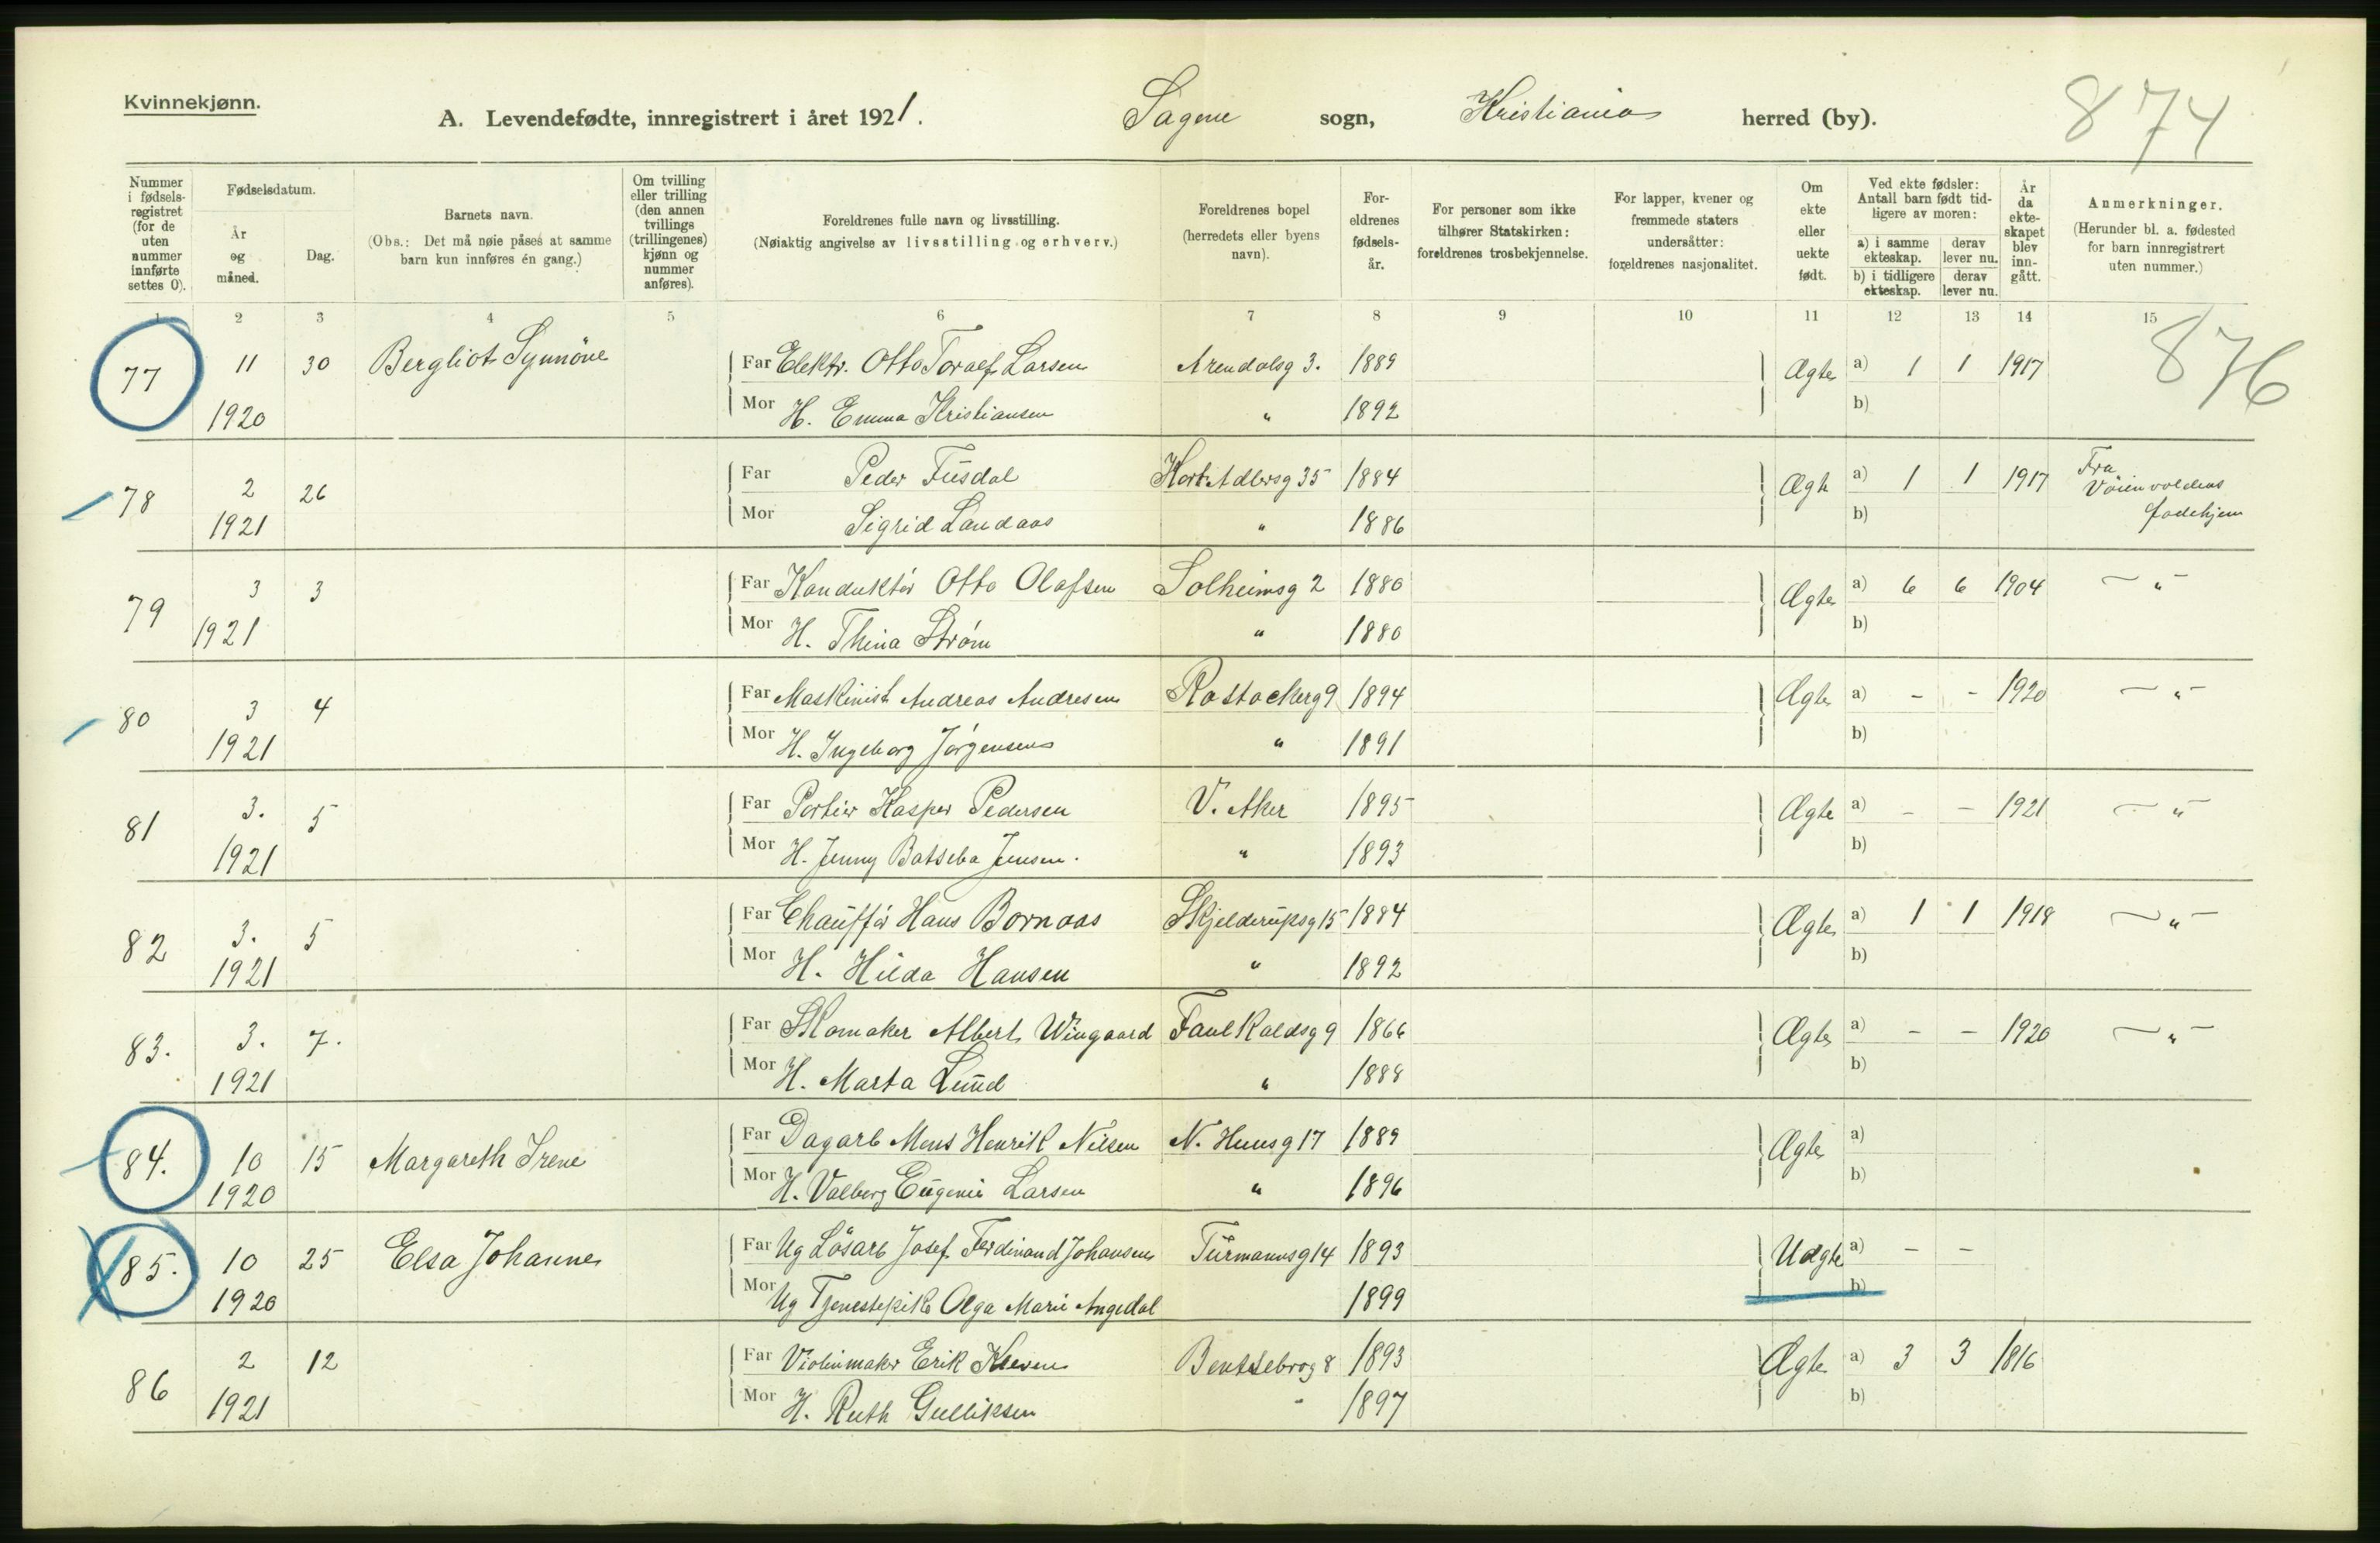 Kvinnekjønn.
A. Levendefødte, innregistrert i året 1921. Sagene sogn, Kristiania herred (by). 874
Nummer i fødselsregistret (for de uten nummer innførte settes 0).
Fødselsdatum.
År og måned.
Dag.
Barnets navn.
(Obs.: Det må nøie påses at samme barn kun innføres én gang.)
Om tvilling eller trilling (den annen tvillings (trillingenes) kjønn og nummer anføres).
Foreldrenes fulle navn og livsstilling.
(Nøiaktig angivelse av livsstilling og erhverv.)
Foreldrenes bopel (herredets eller byens navn).
Foreldrenes fødselsår.
For personer som ikke tilhører Statskirken: foreldrenes trosbekjennelse.
For lapper, kvener og fremmede staters undersåtter: foreldrenes nasjonalitet.
Om ekte eller uekte født.
Ved ekte fødsler: Antall barn født tidligere av moren:
a) i samme ekteskap. derav lever nu.
b) i tidligere ekteskap. derav lever nu.
År da ekteskapet blev inngått.
Anmerkninger.
(Herunder bl. a. fødested for barn innregistrert uten nummer.)
1 2 3 4 5 6 7 8 9 10 11 12 13 14 15
77 11 30 Bergliot Synnöve Far Elektr. Otto Toralf Larsen Arendalsg 3. 1889 Ægte a) 1 1 1917 876
1920 Mor H. Emma Kristiansen " 1892 b)
78 2 26 Far Peder Fusdal Kort Adlersg 35 1884 Ægte a) 1 1 1917 Fra Vöienvoldens födehjem
1921 Mor Sigrid Landaas " 1886 b)
79 3 3 Far Konduktör Otto Olafsen Solheimsg 2 1880 Ægte a) 6 6 1904 — " —
1921 Mor H. Thina Strøm " 1880 b)
80 3 4 Far Maskinist Andreas Andresen Rostockerg 9 1894 Ægte a) - - 1920 — " —
1921 Mor H. Ingeborg Jørgensen " 1891 b)
81 3. 5 Far Portier Kasper Pedersen V. Aker 1895 Ægte a) - - 1921 — " —
1921 Mor H. Jenny Batseba Jensen. " 1893 b)
82 3. 5 Far Chauffør Hans Bornaas Skjelderupsg 15 1884 Ægte a) 1 1 1918 — " —
1921 Mor H. Hilda Hansen " 1892 b)
83. 3. 7. Far Skomaker Albert Wingaard Faulkaldsg 9 1866 Ægte a) - - 1920 — " —
1921 Mor H. Marta Lund " 1888 b)
84. 10 15 Margareth Irene Far Dagarb Mons Henrik Nilsen N. Huusg 17 1889 Ægte a)
1920 Mor H. Valborg Eugenie Larsen " 1896 b)
85. 10 25 Elsa Johanne Far Ug Lösarb Josef Ferdinand Johansen Turmannsg 14 1893 Uægte a) - -
1920 Mor Ug Tjenestepike Olga Marie Angedal 1899 b)
86 2 12 Far Violinmaker Erik Kleven Bentsebrog 8 1893 Ægte a) 3 3 1816
1921 Mor H. Ruth Gulliksen " 1897 b)